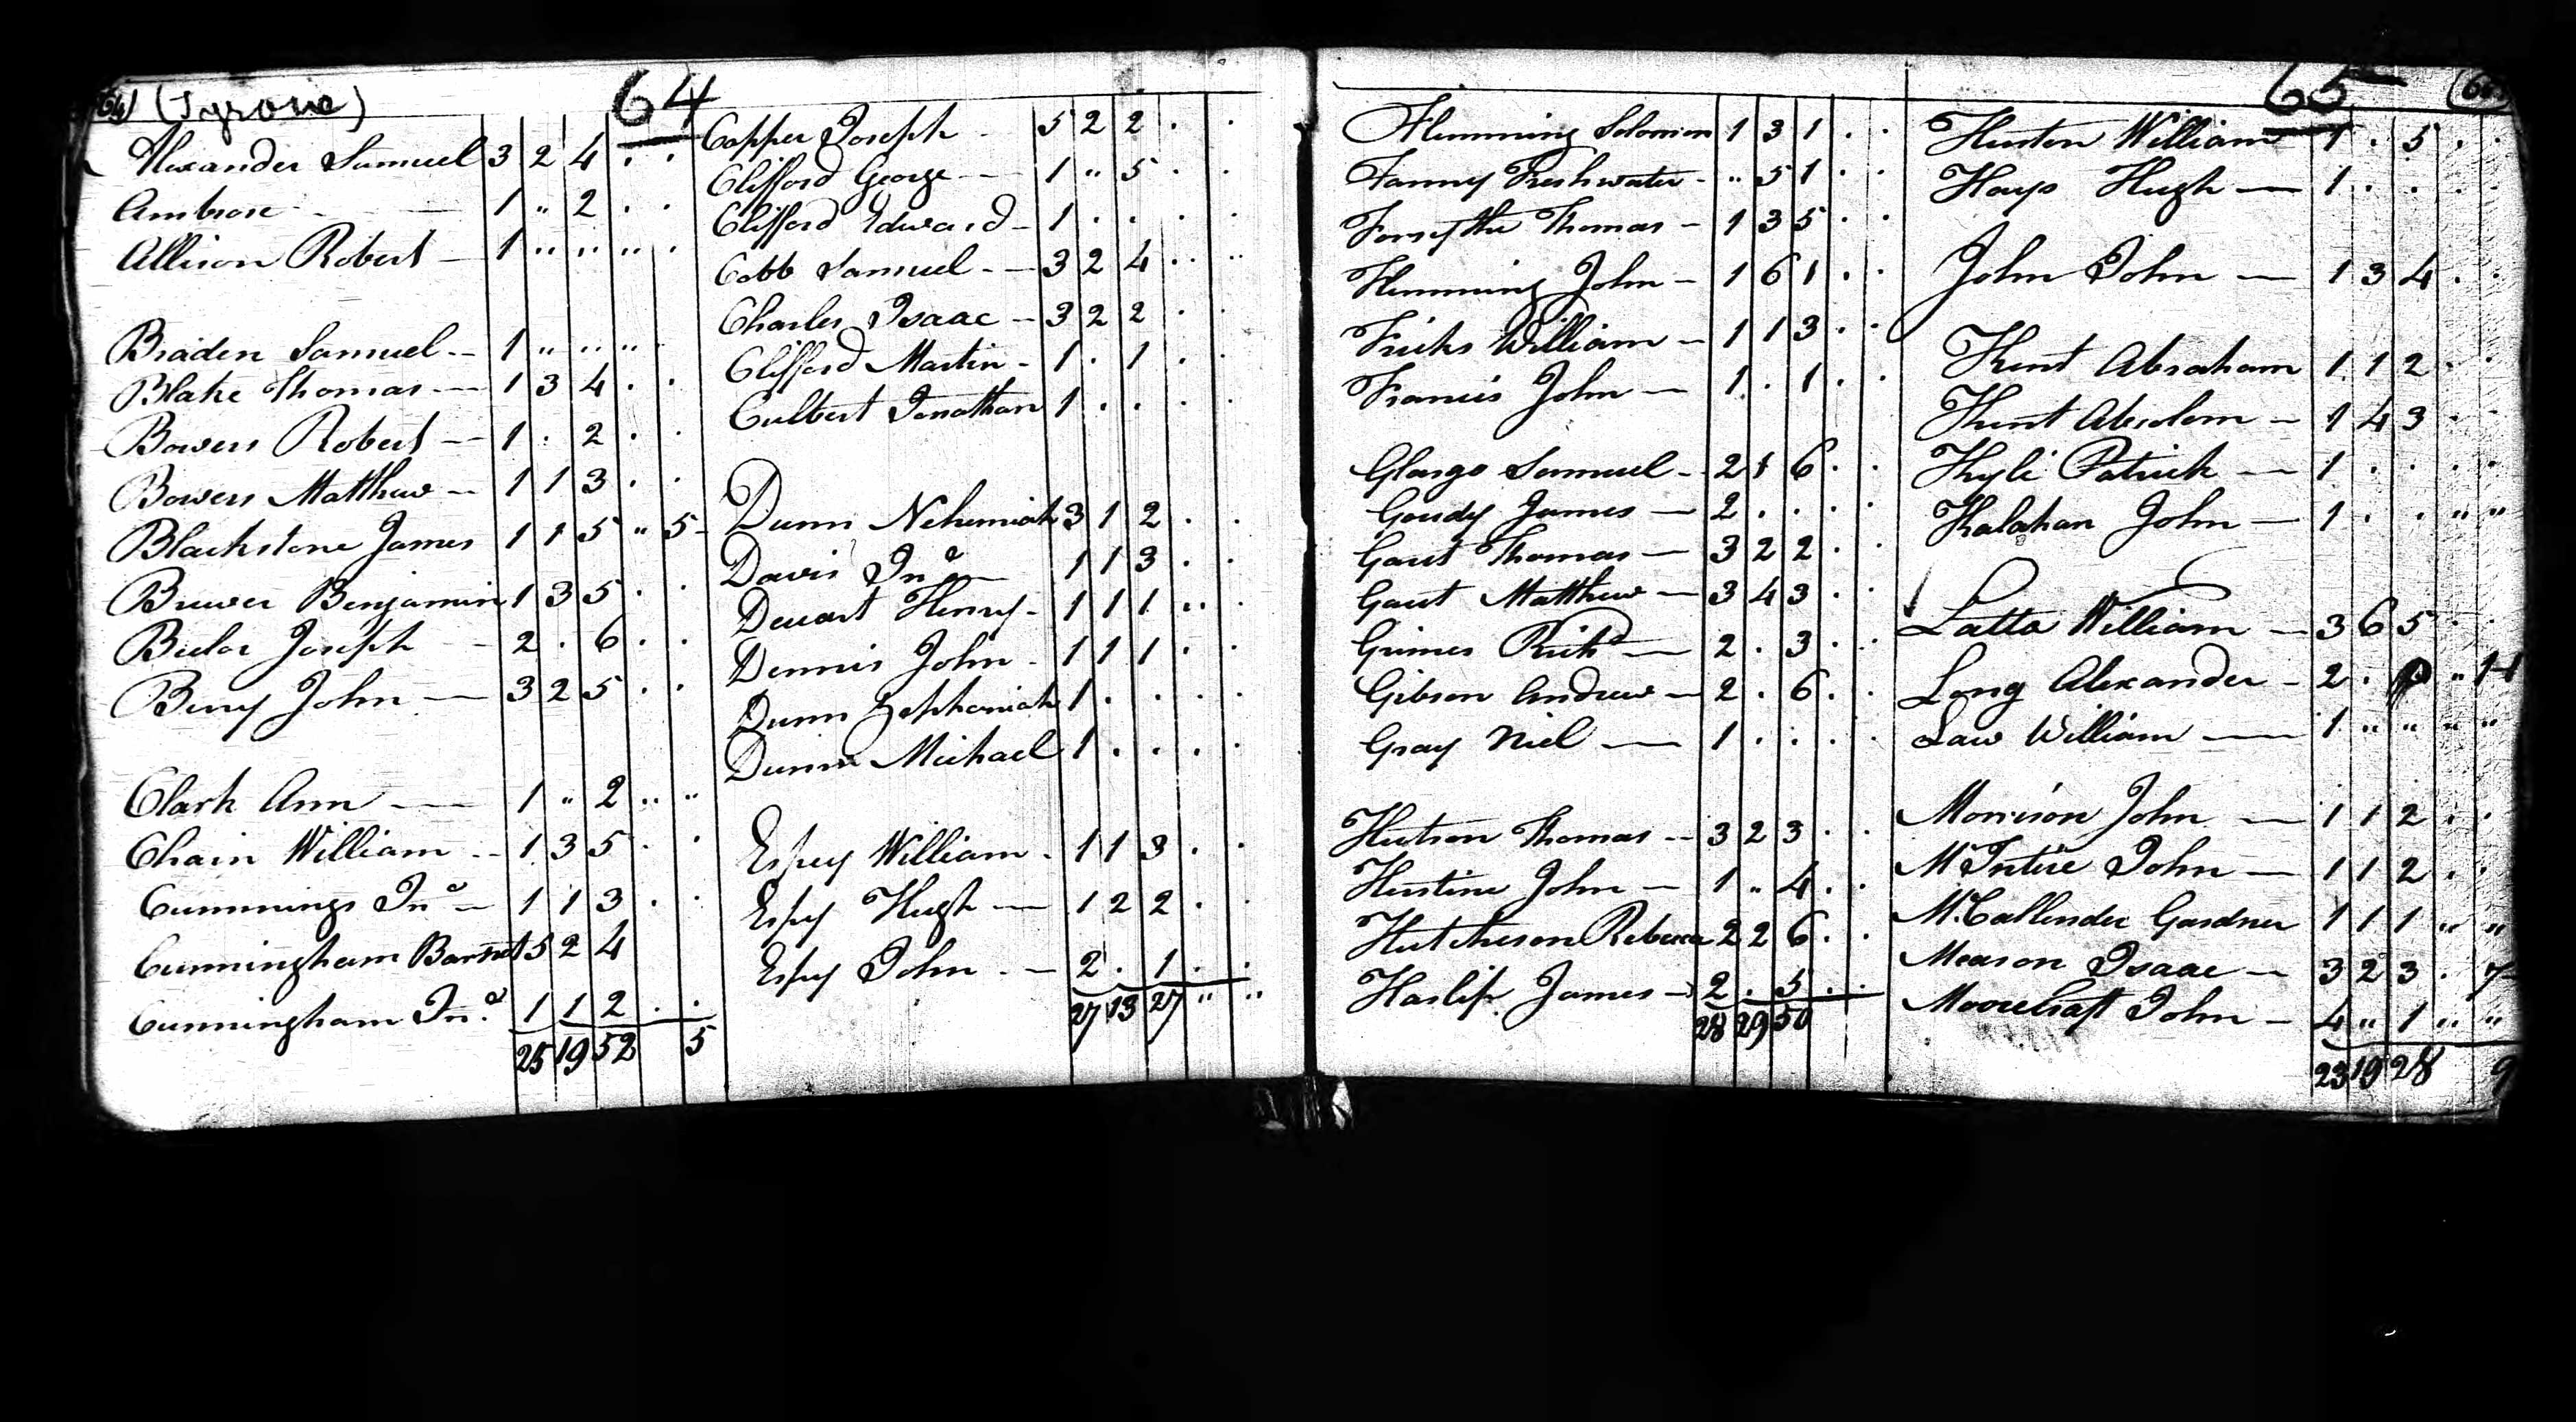 64 (Tyrone) 64
Alexander Samuel 3 2 4 . .
Ambrose - — 1 " 2 . .
Allison Robert — 1 " " " .
Braden Samuel -- 1 " " "
Blake Thomas — 1 3 4 . .
Bowers Robert — 1 . 2 . .
Bowers Matthew -- 1 1 3 . .
Blackstone James 1 1 5 " 5
Brewer Benjamin 1 3 5 . .
Beeler Joseph -- 2 . 6 . .
Berry John — 3 2 5 . .
Clark Ann — 1 " 2 " "
Chain William -- 1 3 5 . .
Cummings Jno — 1 1 3 . .
Cunningham Barnet 5 2 4
Cunningham Jno. 1 1 2 . .
25 19 52 5
Copper Joseph - 5 2 2 . .
Clifford George -- 1 " 5 . .
Clifford Edward - 1 . . . .
Cobb Samuel -- 3 2 4 . .
Charles Isaac -- 3 2 2 . .
Clifford Martin - 1 . 1 . .
Culbert Jonathan 1 . . . .
Dunn Nehemiah 3 1 2 . .
Davis Jno — 1 1 3 . .
Dewart Henry - 1 1 1 " .
Dennis John - 1 1 1 . .
Dunn Zephaniah 1 . . . .
Dunn Michael 1 . . . .
Espey William - 1 1 3 . .
Espey Hugh — 1 2 2 . .
Espey John -- 2 . 1 . .
27 13 27 " "
65
Flemming Solomon 1 3 1 . .
Fanny Freshwater - " 5 1 . .
Forsythe Thomas - 1 3 5 . .
Flemming John - 1 6 1 . .
Fricks William - 1 1 3 . .
Francis John — 1 . 1 . .
Glasgo Samuel - 2 1 6 . .
Goudy James — 2 . . . .
Gaut Thomas — 3 2 2 . .
Gaut Matthew — 3 4 3 . .
Grimes Richd — 2 . 3 . .
Gibson Andrew — 2 . 6 . .
Gray Niel — 1 . . . .
Hutson Thomas -- 3 2 3 . .
John — 1 " 4 . .
Hutcheson Rebecca 2 2 6 . .
Haslip James - 2 . 5 . .
28 29 50
Huston William 1 . 5 . .
Hays Hugh — 1 . . . .
John John — 1 3 4 . .
Kent Abraham 1 1 2 . .
Kent Absolom — 1 4 3 . .
Kyle Patrick — 1 . . . .
Kalahan John — 1 . . " "
Latta William — 3 6 5 . .
Long Alexander - 2 . "
Law William — 1 " " " "
Morrison John — 1 1 2 . .
McIntire John — 1 1 2 . .
McCallender Gardner 1 1 1 " "
Meason Isaac — 3 2 3 . 7
Moorecraft John — 4 " 1 " "
23 19 28 9